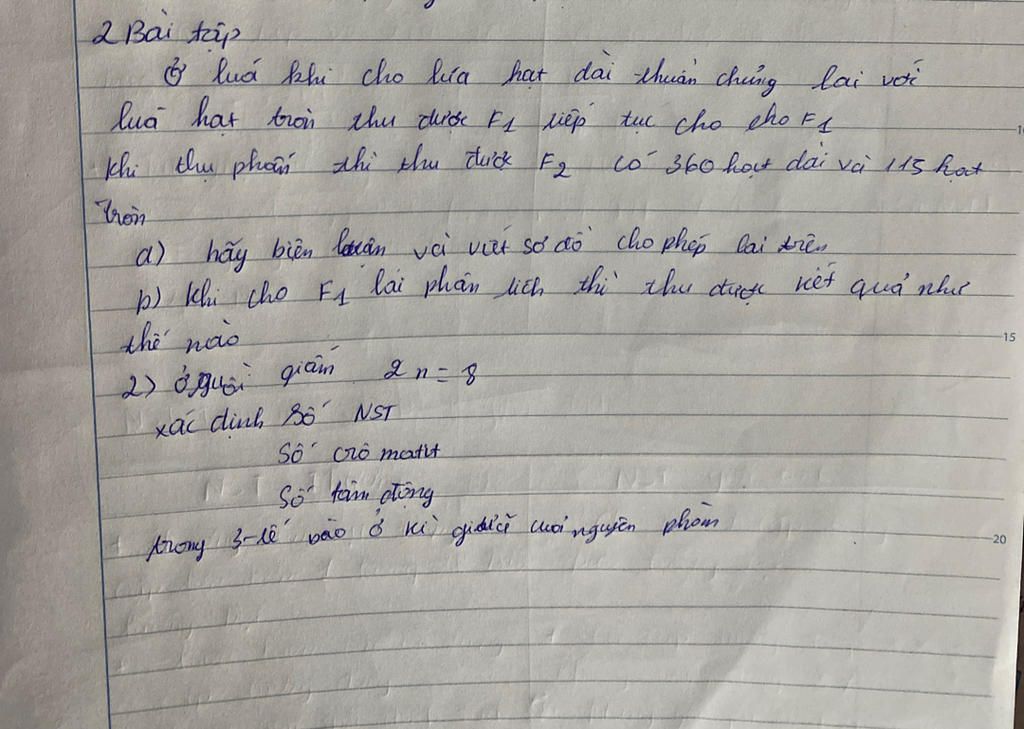 2 Bài tập
Ở luá khi cho lúa hạt dài thuần chủng lai với
luá hạt tròn thu được F1 tiếp tục cho cho F1
khi thụ phấn thì thu được F2 có 360 hạt dài và 115 hạt
tròn
a) hãy biện luận và viết sơ đồ cho phép lai trên
b) khi cho F1 lai phân tích thì thu được kết quả như
thế nào
2) ở giấm 2n = 8
xác định số NST
số crô matit
số tâm động
trong 3 tế bào ở kì giữa nguyên phâm
15
20